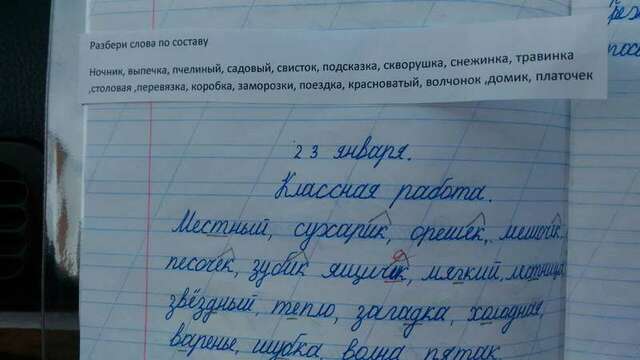 Разбери слова по составу
Ночник, выпечка, пчелиный, садовый, свисток, подсказка, скворушка, снежинка, травинка
,столовая ,перевязка, коробка, заморозки, поездка, красноватый, волчонок ,домик, платочек
23 января.
Классная работа.
Местный, сухарик, орешек, мешочек,
песочек, зубик ящичек, мягкий, лестница
звёздный, тепло, загадка, холодная,
варенье, шубка, волна, пятак.